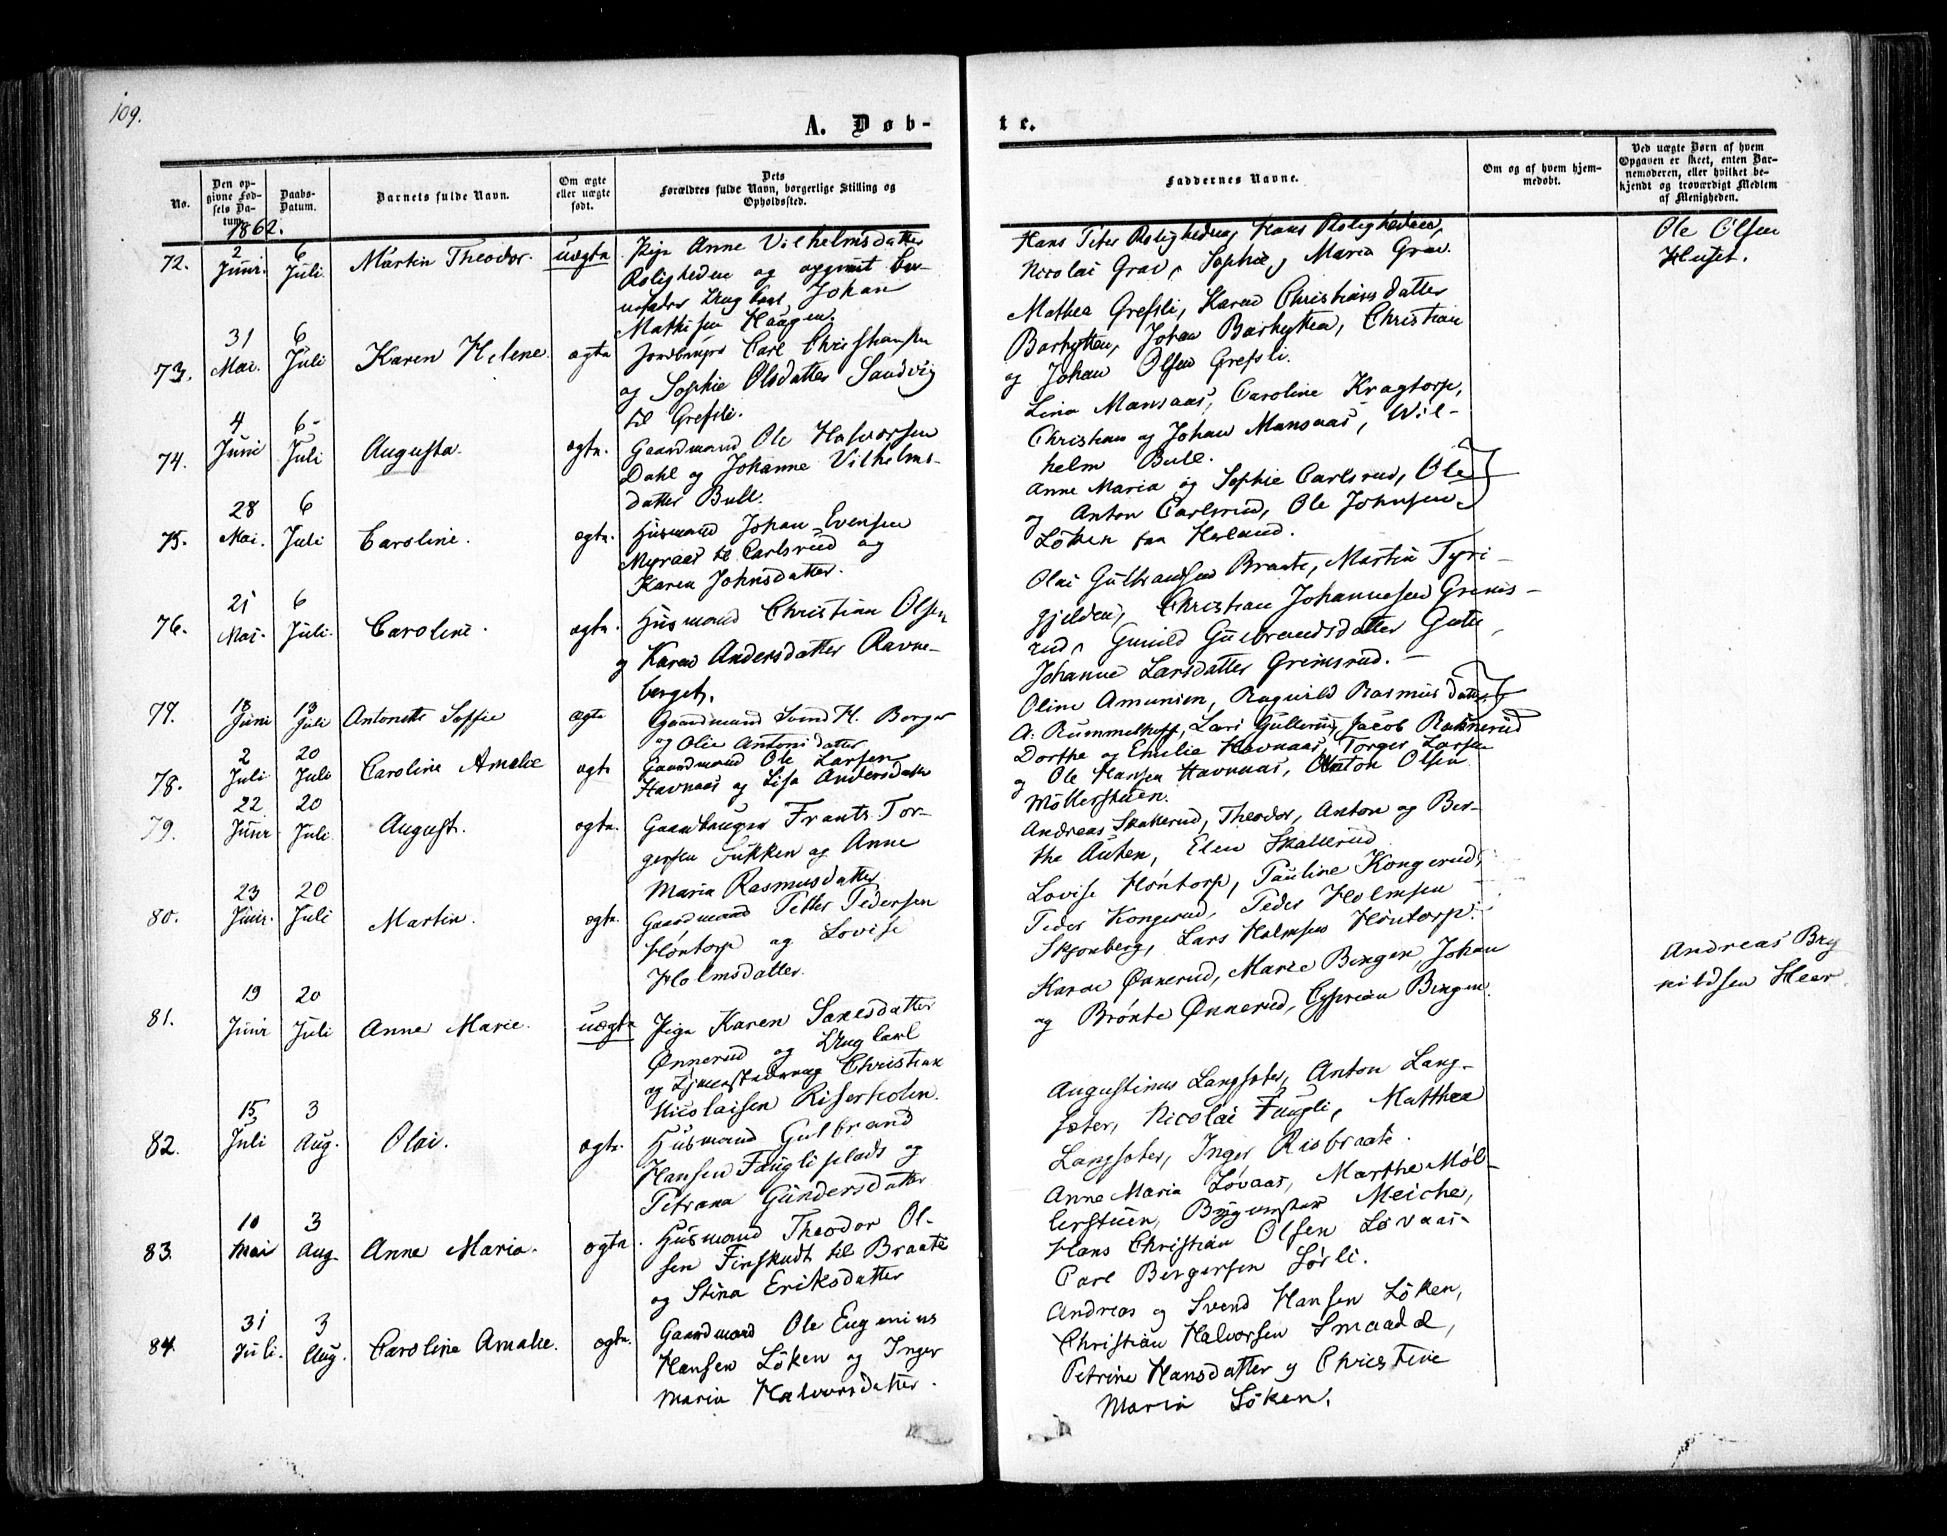 109.
A. Døb-
te.
No.
Den op-
givne Fød-
sels Da-
tum.
Daabs-
Datum.
Barnets fulde Navn.
Om ægte
eller uægte
født.
Dets
Forældres fulde Navn, borgerlige Stilling og
Opholdssted.
Faddernes Navne.
Om og af hvem hjem-
medøbt.
Ved uægte Børn af hvem
Opgaven er skeet, enten Bar-
nemoderen, eller hvilket be-
kjendt og troværdigt Medlem
af Menigheden.
1862.
72. 2 Juni. 6 Juli Martin Theodor. uægte Pige Anne Vilhelmsdatter
Roligheden og opgivet Bar-
nefader Ungkarl Johan
Mathisen Haugen.
Hans Peter Rolighedens, Hans Rolighedens,
Nicolai Grav, Sophie, Maria Grav.
Ole Olsen
Huset.
73. 31 Mai. 6 Juli Karen Helene. ægte Jordbruger Carl Christiansen
og Sophie Olsdatter Sandvig
til Grefsli.
Mathea Grefsli, Karen Christiansdatter
Barhytten, Johan Barhytten, Christian
og Johan Olsen Grefsli.
74. 4 Juni 6 Juli Augusta. ægte. Gaardmand Ole Halvorsen
Dahl og Johanne Vilhelms-
datter Bull.
Lina Mansaas, Caroline Kragtorp,
Christian og Johan Mansaas, Wil-
helm Bull.
75. 28 Mai. 6 Juli Caroline. ægte. Husmand Johan Evensen
Myraas til Carlsrud og
Karen Johnsdatter.
Anne Maria og Sophie Carlsrud, Ole
og Anton Carlsrud, Ole Johnsen
Löken fra Herland.
76. 21 Mai. 6 Juli. Caroline. ægte. Husmand Christian Olsen
og Karen Andersdatter Ravne-
berget.
Olai Gulbrandsen Braate, Martin Tyri-
gjelden, Christian Johannesen Grims-
rud, Gunild Gulbrandsdatter
Johanne Larsdatter Grimsrud.
77. 18 Juni 13 Juli Antonette Soffie ægte Gaardmand Svend H. Berger
og Olie Antonidatter
Oline Amunsen, Ragnild Rasmusdatter
A. Rummelhoff, Lars Gullerud, Jacob
78. 2 Juli 20 Juli Caroline Amalie ægte Gaardmand Ole Larsen
Havnaas og Lisa Andersdatter
Dorthe og Emilie Havnaas, Torger Larsen
og Ole Hansen Havnaas, Anton Olsen
Möllerstuen.
79. 22 Juni 20 Juli. August. ægte. Gaardbruger Frants Tor-
gersen Sukken og Anne
Maria Rasmusdatter
Andreas Skallerud, Theodor, Anton og Ber-
the Auten, Elen Skallerud
80. 23 Juni. 20 Juli Martin. ægte. Gaardmand Petter Pedersen
Höntorp og Lovise
Holmsdatter.
Lovise Höntorp, Pauline Kongerud,
Peder Kongerud, Peder Holmsen
Skjønberg, Lars Holmsen Höntorp.
81. 19 Juni 20 Juli Anne Marie. uægte Pige Karen Sanesdatter
Ønnerud og Ungkarl
og Tjenestedreng Christian
Nicolaisen Riserholen.
Karen Ønnerud, Marie Bingen, Johan
og Brönte Ønnerud, Cyprian Bingen.
Andreas Bry
nildsen Heer.
82. 15 Juli 3 Aug. Olai. ægte. Husmand Gulbrand
Hansen Faugliplads og
Petrana Gundersdatter
Augustinus Langsæter, Anton Lang-
sæter, Nicolai Faugli, Matthea
Langsæter, Inger Risbraate.
83. 10 Mai 3 Aug. Anne Maria. ægte. Husmand Theodor Ol-
sen Finskudt til Braate
og Stina Eriksdatter
Anne Maria Lövaas, Marthe Möl-
lerstuen, Bygmester Meiche,
Hans Christian Olsen Lövaas.
Carl Bergersen Sörli.
84. 31 Juli. 3 Aug. Caroline Amalie. ægte. Gaardmand Ole Eugenius
Hansen Löken og Inger
Maria Halvorsdatter.
Andreas og Svend Hansen Löken,
Christian Halvorsen Smaadal,
Petrine Hansdatter og Christine
Maria Löken.